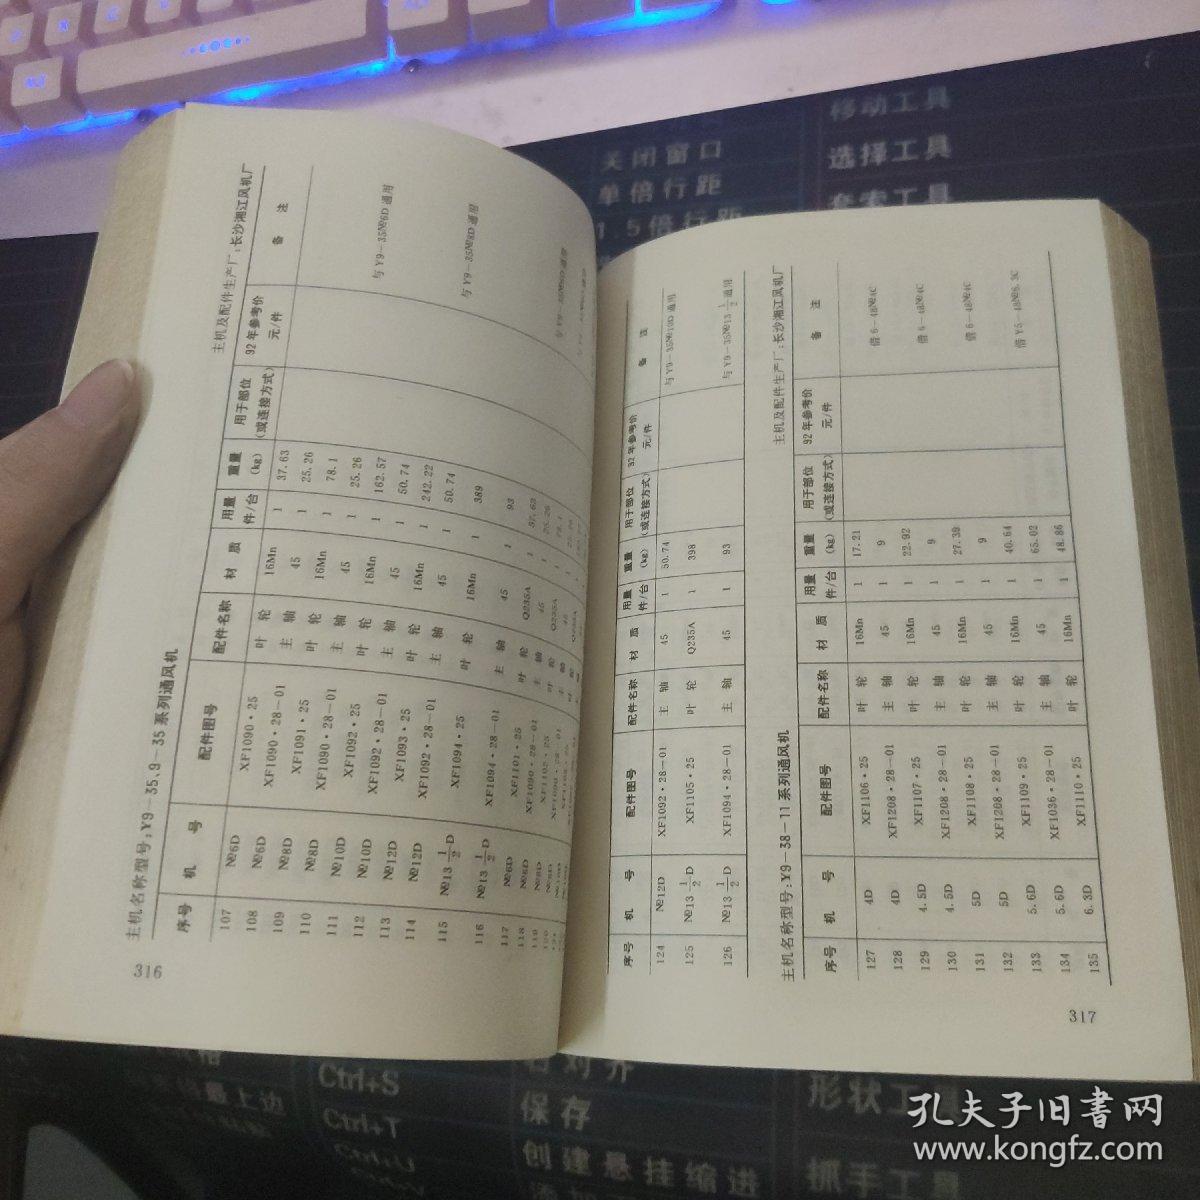 主机名称型号:Y9-35、9-35系列通风机 主机及配件生产厂:长沙湘江风机厂
序号 机 号 配件图号 配件名称 材 质 用量件/台 重量(kg) 用于部位(或连接方式) 92年参考价元/件 备 注
107 №6D XF1090·25 叶 轮 16Mn 1 37.63
108 №6D XF1090·28-01 主 轴 45 1 25.26
109 №8D XF1091·25 叶 轮 16Mn 1 78.1
110 №8D XF1090·28-01 主 轴 45 1 25.26 与Y9-35№6D通用
111 №10D XF1092·25 叶 轮 16Mn 1 162.57
112 №10D XF1092·28-01 主 轴 45 1 50.74
113 №12D XF1093·25 叶 轮 16Mn 1 242.22
114 №12D XF1092·28-01 主 轴 45 1 50.74 与Y9-35№8D通用
115 №13 1/2 D XF1094·25 叶 轮 16Mn 1 389
116 №13 1/2 D XF1094·28-01 主 轴 45 1 93
117 №6D XF1101·25 叶 轮 Q235A 1 37.63
118 №6D XF1090·28-01 主 轴 45 1 25.26
119 №8D XF1102·25 叶 轮 Q235A 1 78.1
120 №8D XF1090·28-01 主 轴 45 1
316
序号 机 号 配件图号 配件名称 材 质 用量件/台 重量(kg) 用于部位(或连接方式) 92年参考价元/件 备 注
124 №12D XF1092·28-01 主 轴 45 1 50.74 与Y9-35№10D通用
125 №13 1/2 D XF1105·25 叶 轮 Q235A 1 398
126 №13 1/2 D XF1094·28-01 主 轴 45 1 93 与Y9-35№13 1/2通用
主机名称型号:Y9-38-11系列通风机 主机及配件生产厂:长沙湘江风机厂
序号 机 号 配件图号 配件名称 材 质 用量件/台 重量(kg) 用于部位(或连接方式) 92年参考价元/件 备 注
127 4D XF1106·25 叶 轮 16Mn 1 17.21
128 4D XF1208·28-01 主 轴 45 1 9 借6-48№4C
129 4.5D XF1107·25 叶 轮 16Mn 1 22.92
130 4.5D XF1208·28-01 主 轴 45 1 9 借6-48№4C
131 5D XF1108·25 叶 轮 16Mn 1 27.39
132 5D XF1208·28-01 主 轴 45 1 9 借6-48№4C
133 5.6D XF1109·25 叶 轮 16Mn 1 40.64
134 5.6D XF1036·28-01 主 轴 45 1 65.02 借Y5-48№6.3C
135 6.3D XF1110·25 叶 轮 16Mn 1 48.86
317
移动工具
关闭窗口 选择工具
单倍行距 套索工具
1.5倍行距
Ctrl+S 保存
Ctrl+T
Ctrl+U 创建悬挂缩进 抓手工具
孔夫子旧书网
www.kongfz.com